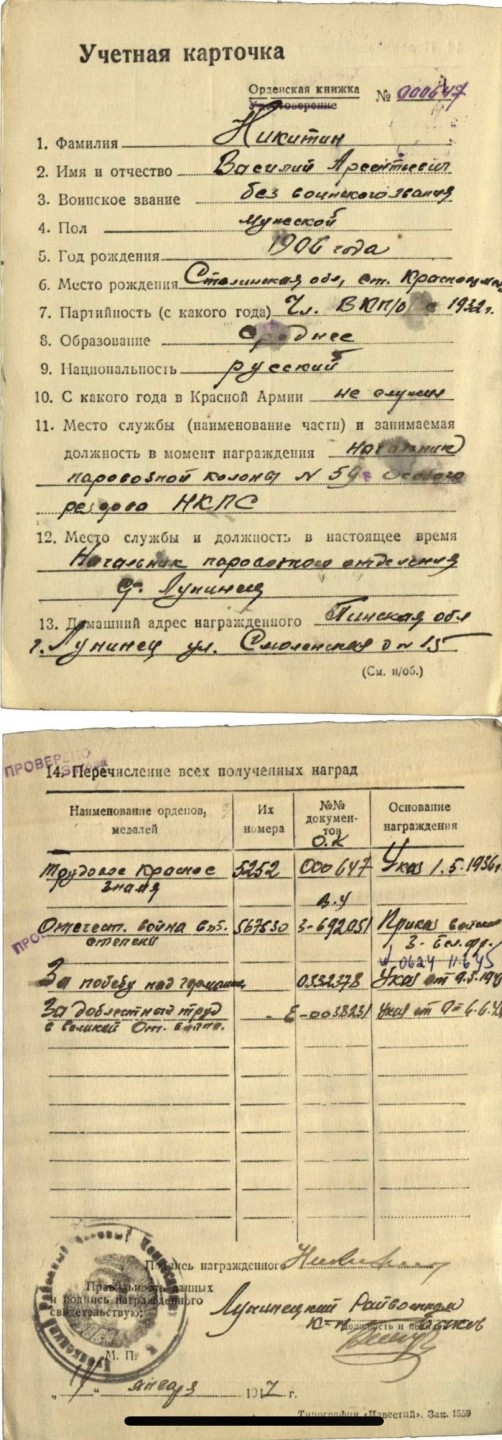 Учетная карточка
Орденская книжка
Удостоверение
№ 000647
1. Фамилия Никитин
2. Имя и отчество Василий Арсентьевич
3. Воинское звание без воинского звания
4. Пол мужской
5. Год рождения 1906 года
6. Место рождения Сталинская обл, ст.
7. Партийность (с какого года) Чл. ВКП/б с 1932 г.
8. Образование среднее
9. Национальность русский
10. С какого года в Красной Армии не служил
11. Место службы (наименование части) и занимаемая
должность в момент награждения начальник
паровозной колоны N 59 особого
резерва НКПС
12. Место службы и должность в настоящее время
Начальник паровозного отделения
ст. Лунинец
13. Домашний адрес награжденного Пинская обл
г. Лунинец ул. Смоленская д № 15
(См. н/об.)
ПРОВЕРЕНО
14. Перечисление всех полученных наград
Наименование орденов, медалей
Их номера
№№ документов
Основание награждения
О.К
Трудовое Красное 5252 000647 Указ 1.5.1936г
Знамя
в.у
Отечест. война 567530 З-692051 Приказ
степени 3-Бел.фр.
0624 11.6.45
За победу над германи 0332378 Указ от 9.5.194
За доблестный труд - Е-0038231 Указ от 6.6.4
в великой От. войне.
Подпись награжденного
Правильность данных
и подпись награжденного
свидетельствую:
Лунинецкий Райвоенком
Должность и
М. П.
января 1947 г.
Типография «Известий». Зак. 1559